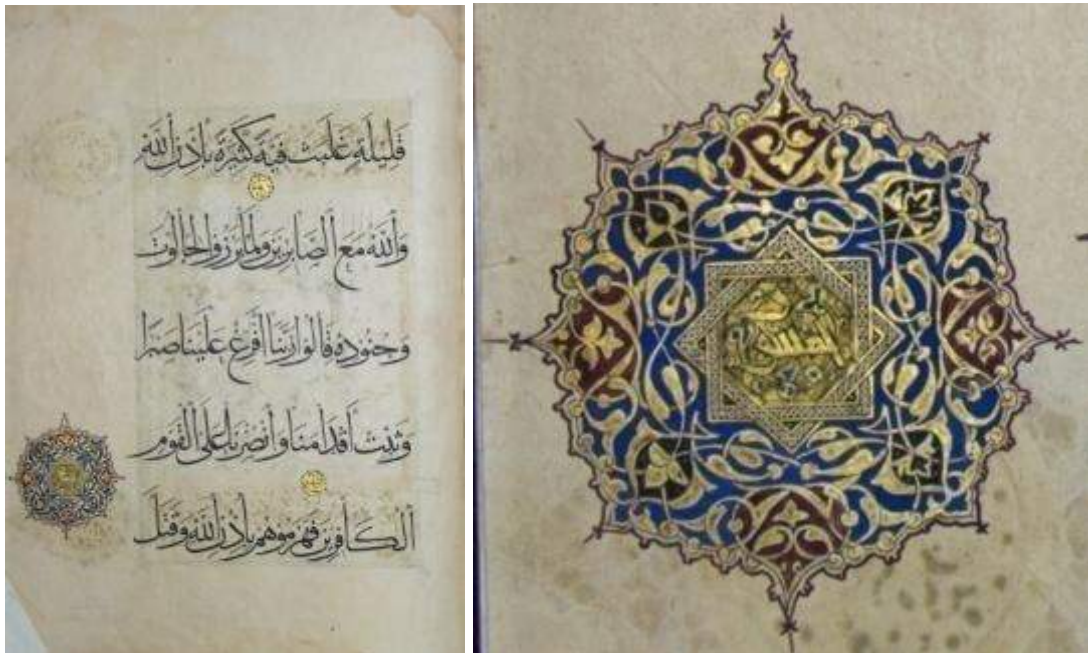 قليلة غلبت فئة كثيرة بإذن الله
والله مع الصابرين ولما برزوا لجالوت
وجنوده قالوا ربنا أفرغ علينا صبرا
وثبت أقدامنا وانصرنا على القوم
الكافرين فهزموهم بإذن الله وقتل